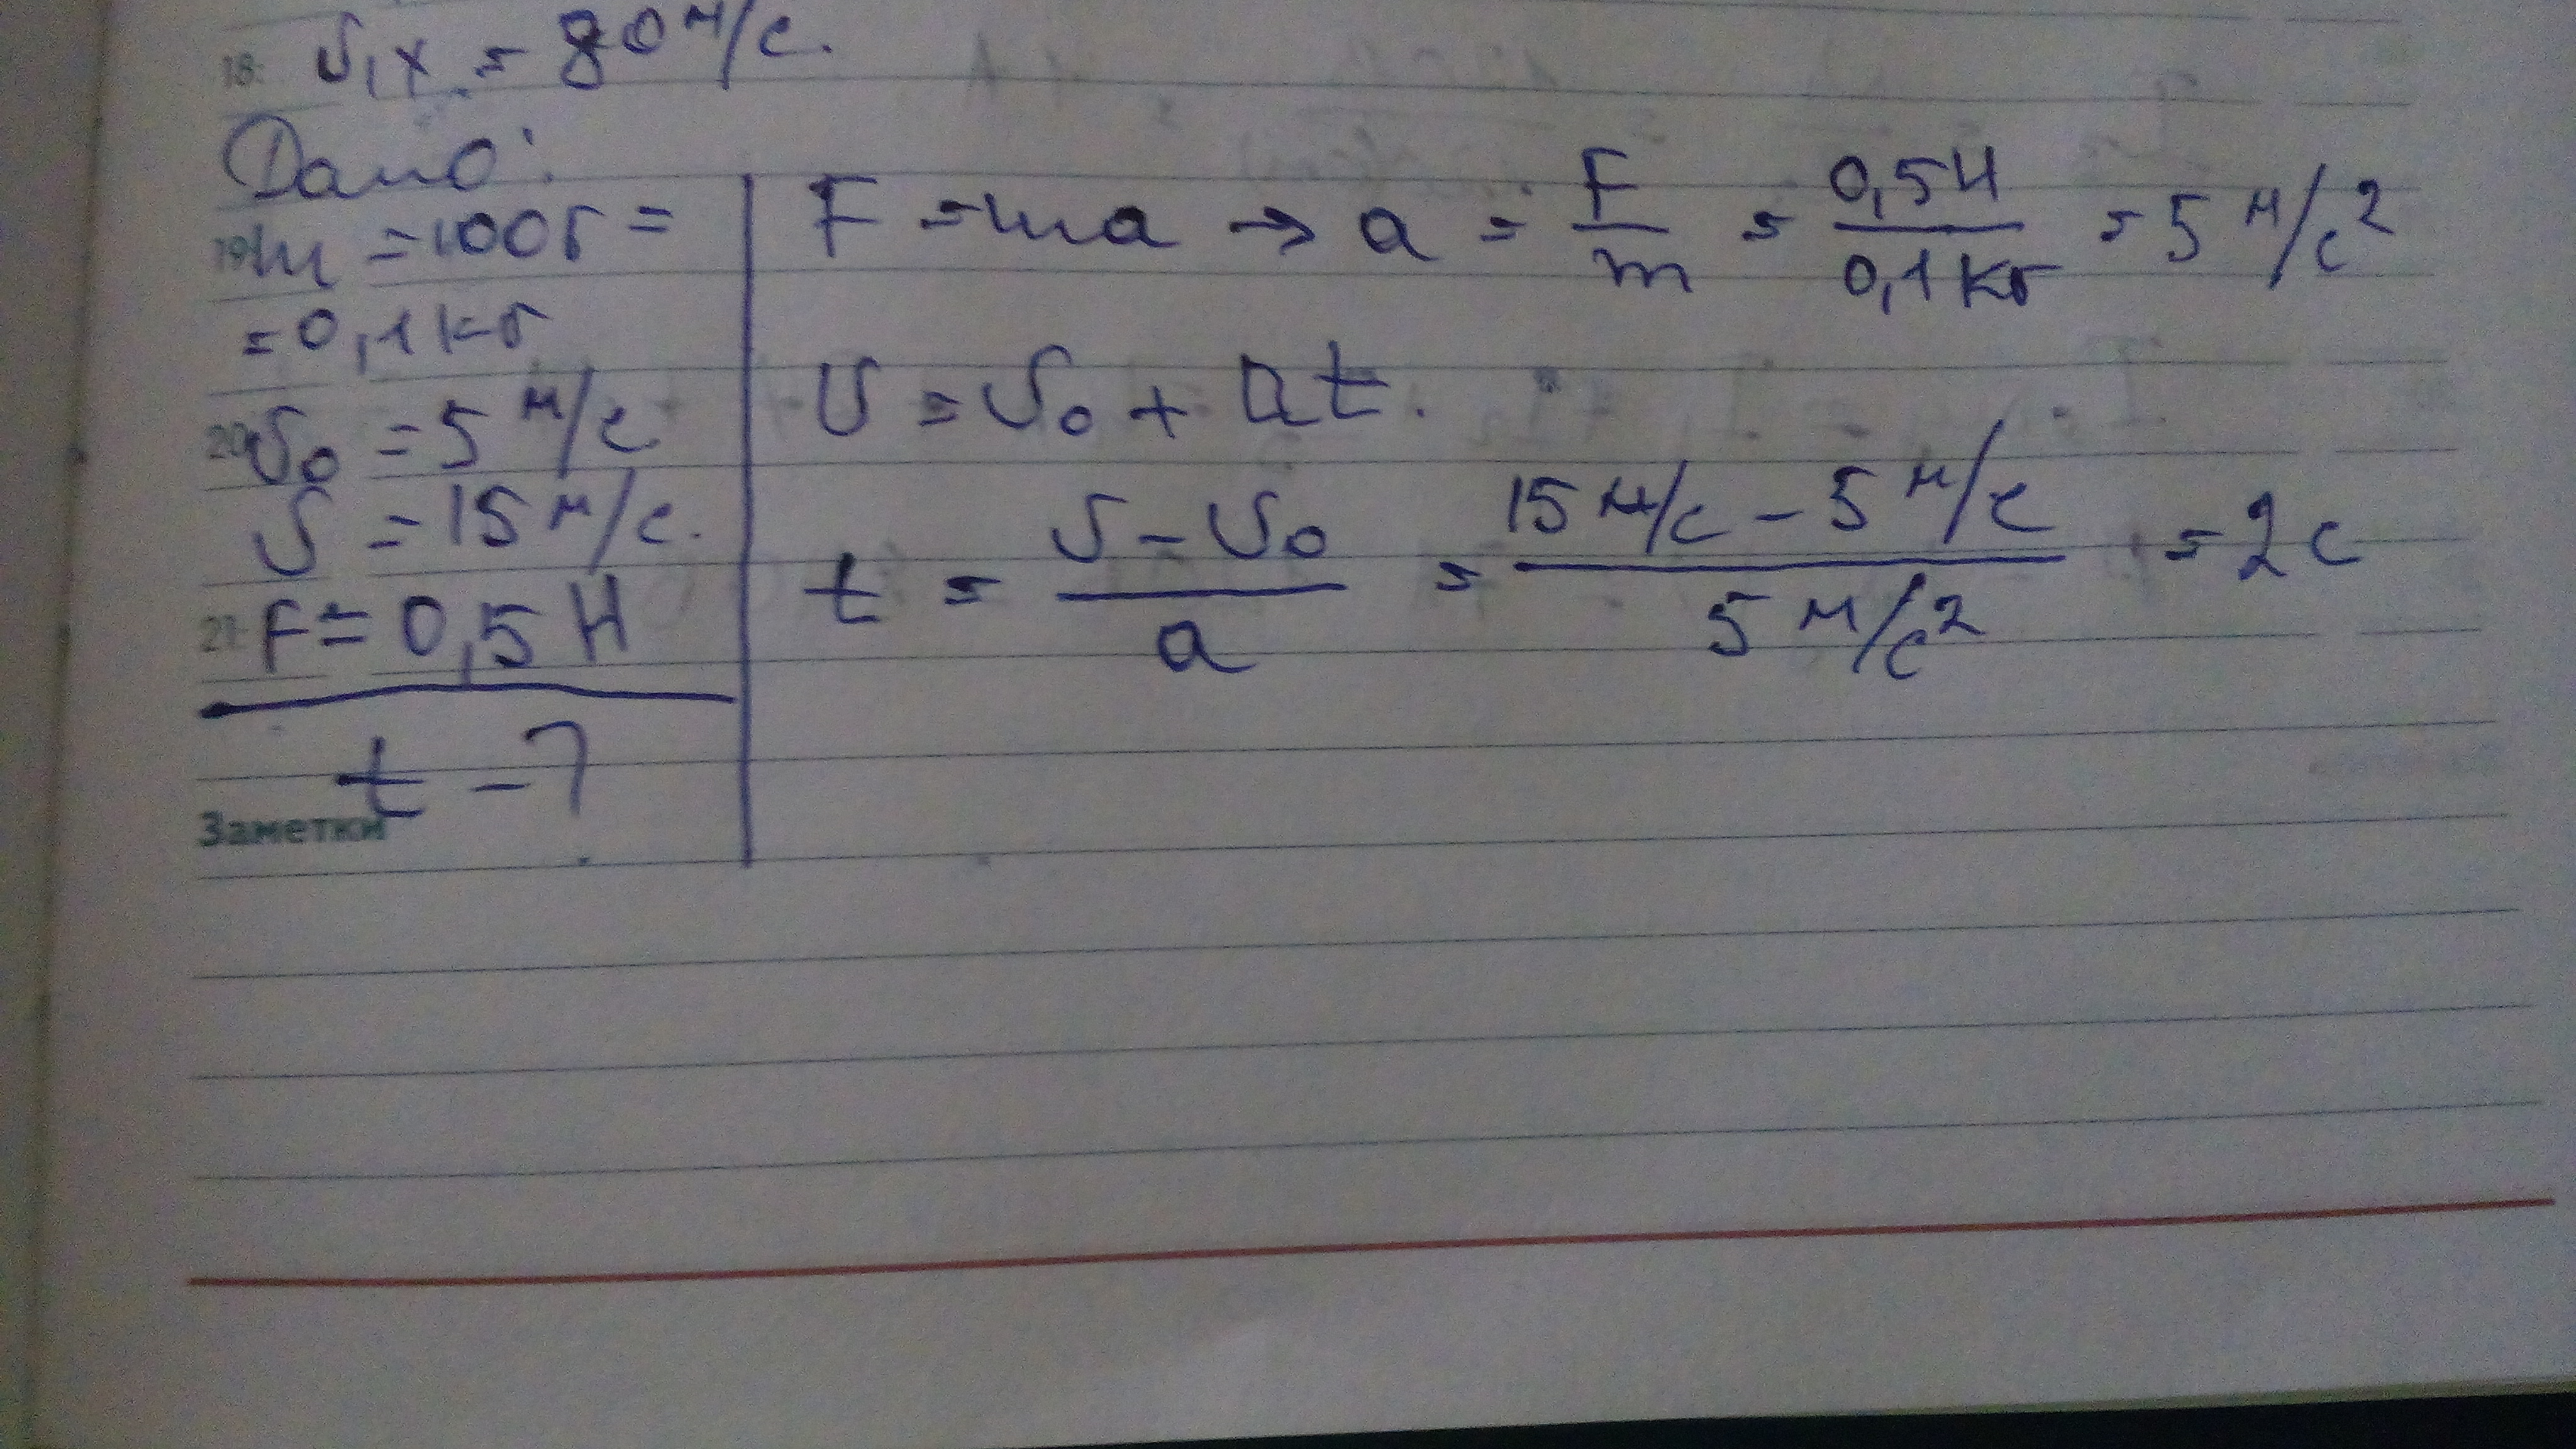 18: υ₁ₓ = 80 м/с.
Дано:
19 m = 100г =
= 0,1 кг
20 υ₀ = 5 м/с
υ = 15 м/с.
21 F = 0,5 Н
t - ?
Заметки
F = ma → a = F/m = 0,5Н/0,1кг = 5 м/с²
υ = υ₀ + at.
t = (υ - υ₀)/a = (15 м/с - 5 м/с)/(5 м/с²) = 2с